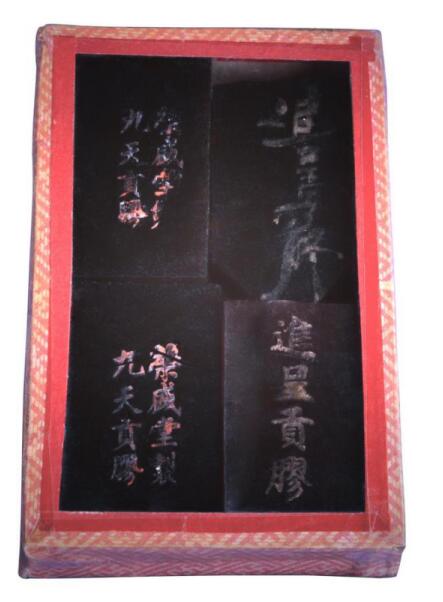 進呈貢膠
榮咸堂製
九天貢膠
進呈貢膠
榮咸堂製
九天貢膠